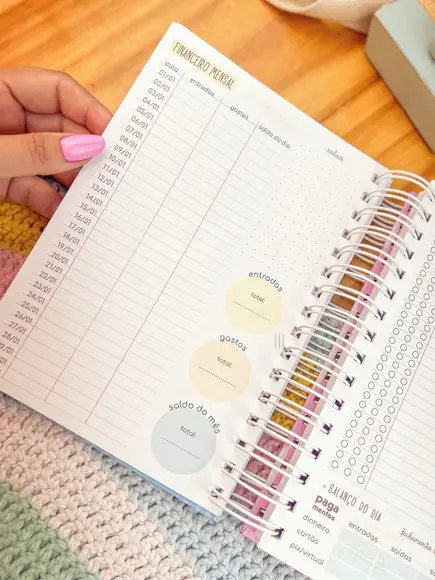 FINANCEIRO MENSAL
data entradas gastos saldo do dia notas
01/01
02/01
03/01
04/01
05/01
06/01
07/01
08/01
09/01
10/01
11/01
12/01
13/01
14/01
15/01
16/01
17/01
18/01
19/01
20/01
21/01
22/01
23/01
24/01
25/01
26/01
27/01
28/01
29/01
entradas
total:
gastos
total:
saldo do mês
total:
BALANÇO DO DIA
pagamentos entradas saídas fechamento
dinheiro
cartão
pix/virtual